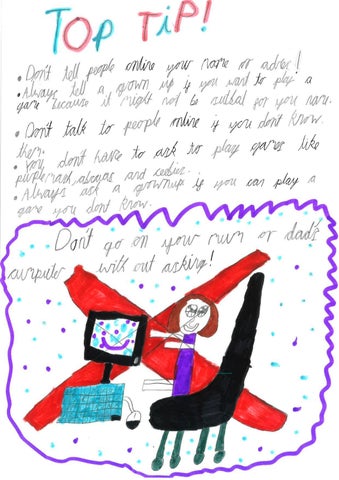 TOP TiP!
• Don't tell people online your name or adres!
• Always tell a grown up if you want to play a
game because it might not be suitbal for you
• Don't talk to people online if you dont know
them.
• You don't have to ask to play games like
and
• Always ask a grownup if you can play a
game you dont know.
Don't go on your mum or dad's
computer with out asking!